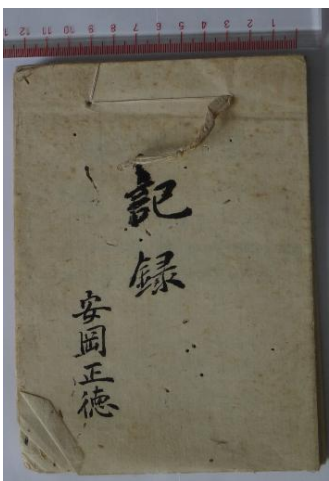 12 11 10 9 8 7 6 5 4 3 2 1
記録
安岡正徳